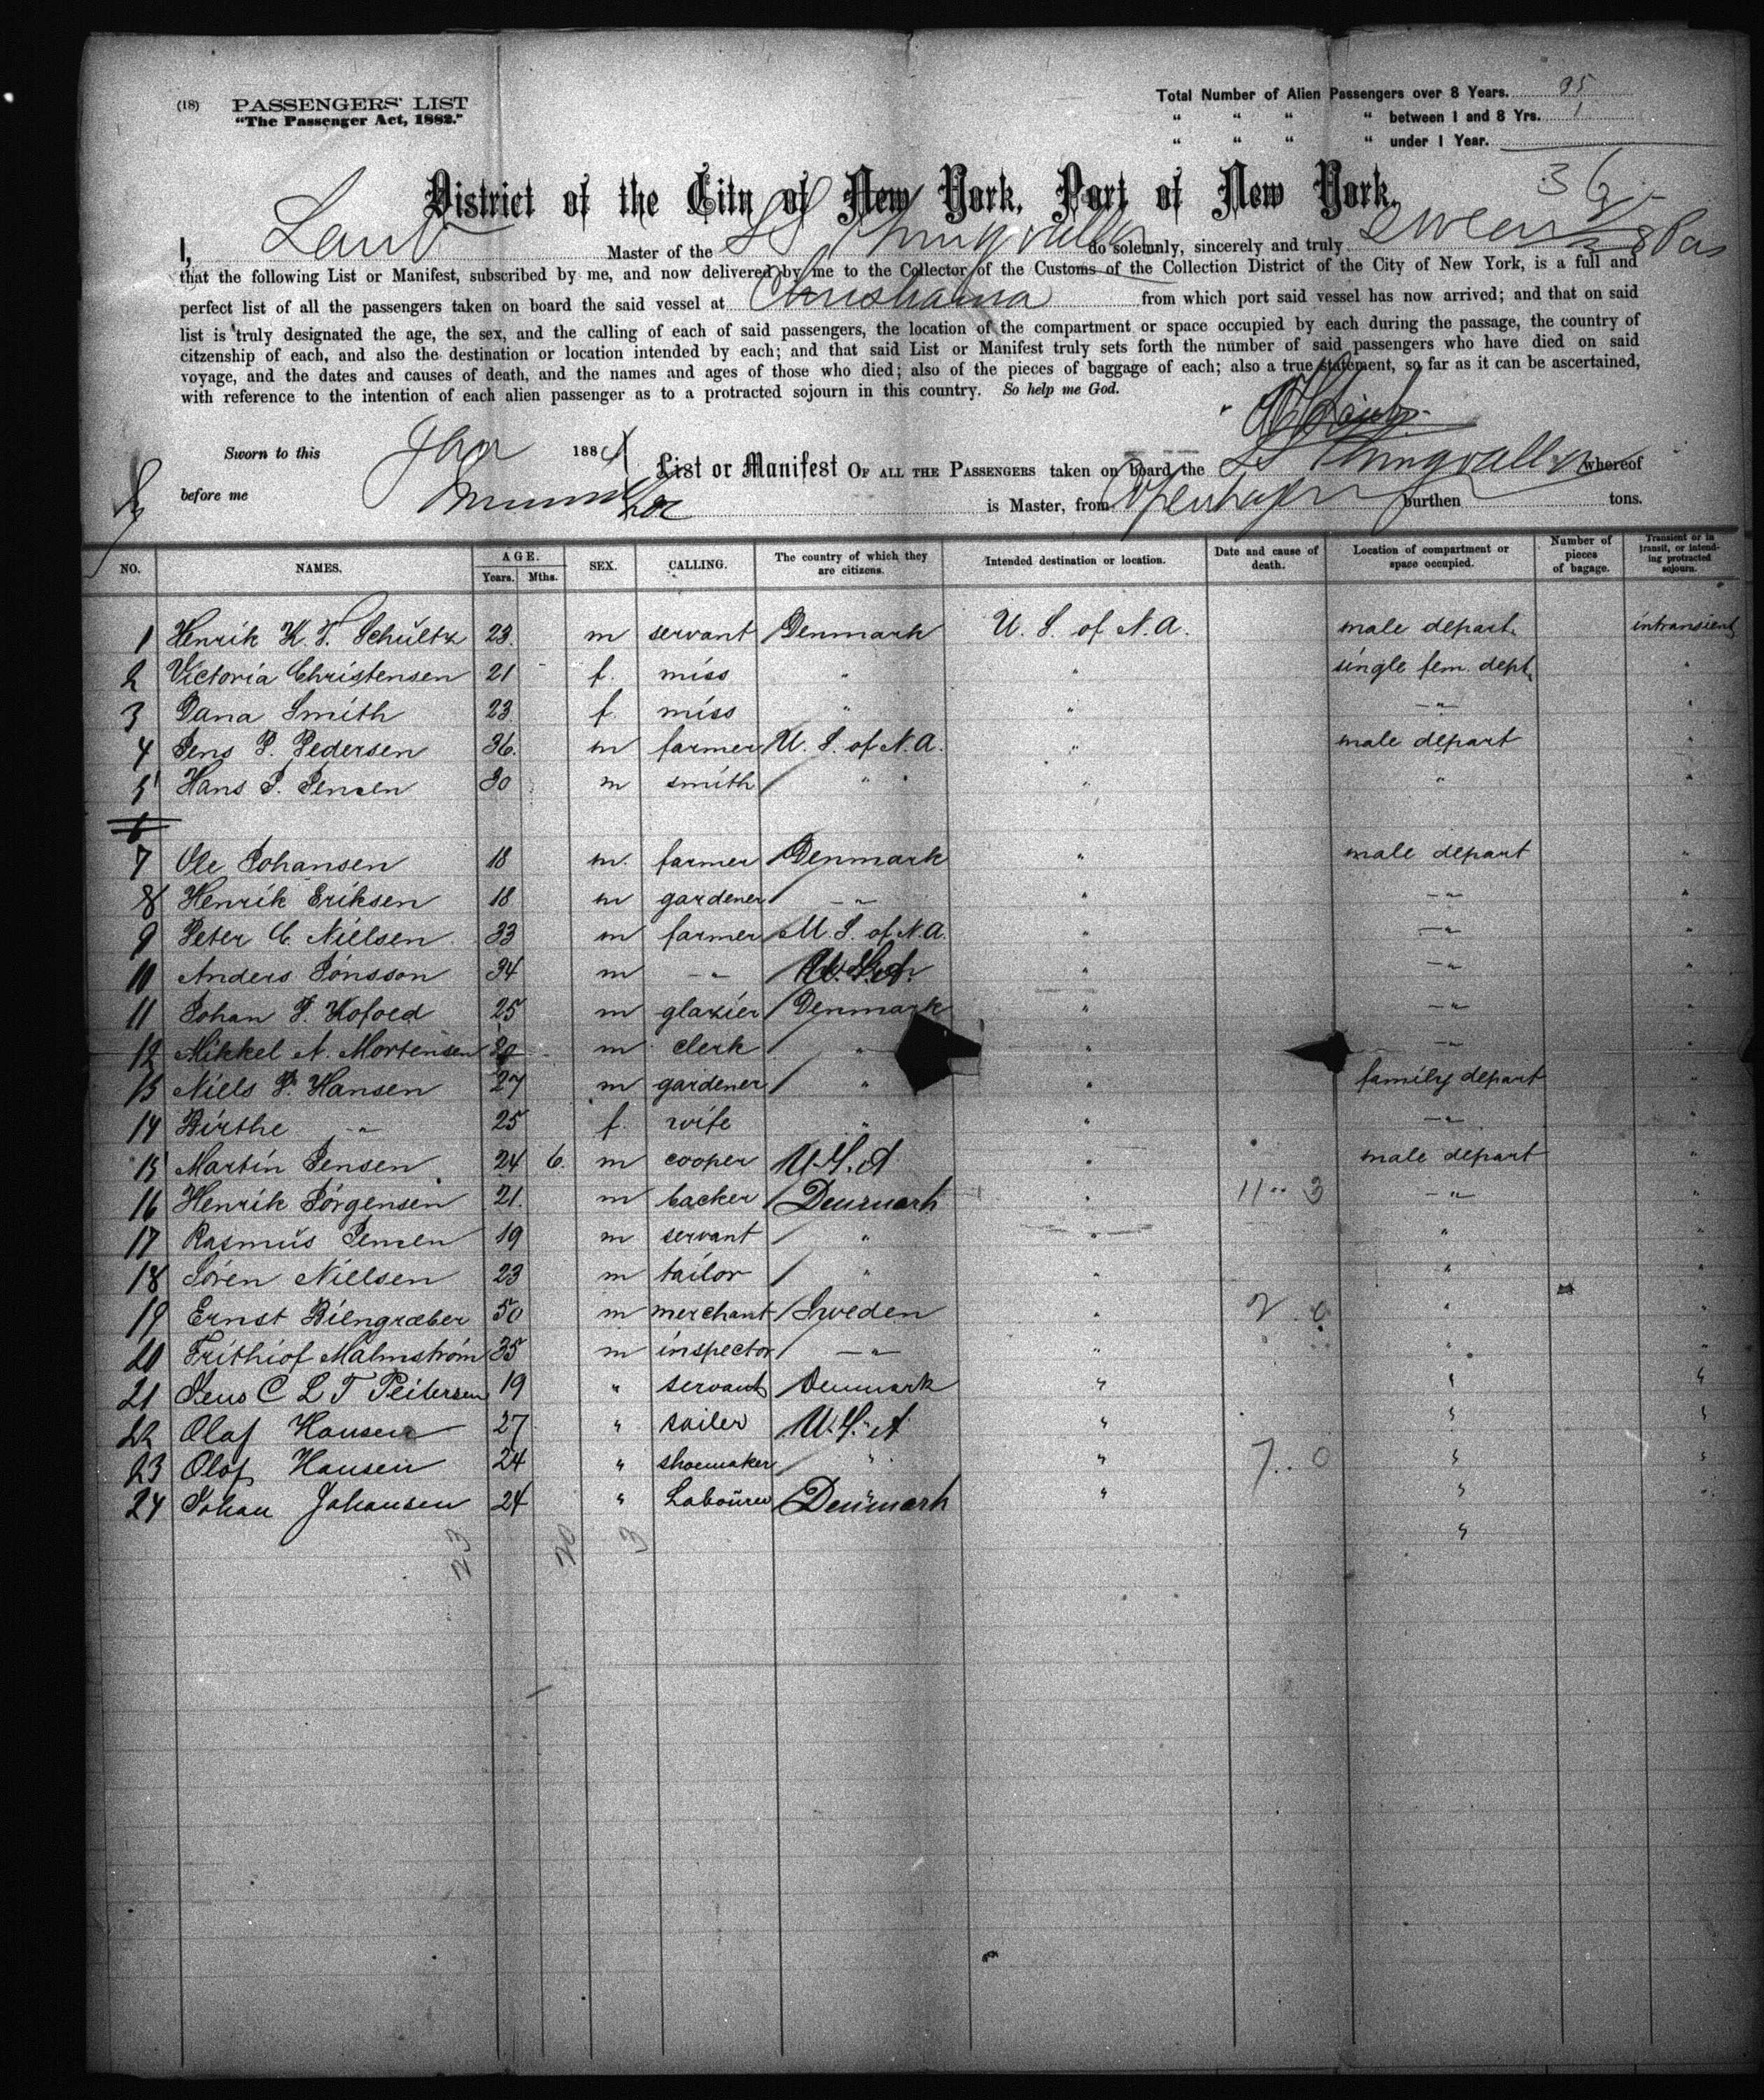 (18) PASSENGERS' LIST
"The Passenger Act, 1882."
Total Number of Alien Passengers over 8 Years. 35
" " " " between 1 and 8 Yrs. 1
" " " " under 1 Year.
36
District of the City of New York, Port of New York.
I, Laub Master of the SS Thingvalla do solemnly, sincerely and truly swear
that the following List or Manifest, subscribed by me, and now delivered by me to the Collector of the Customs of the Collection District of the City of New York, is a full and
perfect list of all the passengers taken on board the said vessel at Christiania from which port said vessel has now arrived; and that on said
list is truly designated the age, the sex, and the calling of each of said passengers, the location of the compartment or space occupied by each during the passage, the country of
citzenship of each, and also the destination or location intended by each; and that said List or Manifest truly sets forth the number of said passengers who have died on said
voyage, and the dates and causes of death, and the names and ages of those who died; also of the pieces of baggage of each; also a true statement, so far as it can be ascertained,
with reference to the intention of each alien passenger as to a protracted sojourn in this country. So help me God.
Laub
Sworn to this Jan 1884
before me
List or Manifest OF ALL THE PASSENGERS taken on board the SS Thingvalla whereof
is Master, from Copenhagen burthen tons.
NO. NAMES. AGE. Years. Mths. SEX. CALLING. The country of which they are citizens. Intended destination or location. Date and cause of death. Location of compartment or space occupied. Number of pieces of bagage. Transient or in transit, or intending protracted sojourn.
1 Henrik K. F. Schultz 23. m servant Denmark U. S. of N. A. male depart. intransient
2 Victoria Christensen 21 f. miss " " single fem. dept. "
3 Dana Smith 23. f. miss " " —"— "
4 Jens P. Pedersen 36. m farmer U. S. of N. A. " male depart "
5 Hans P. Jensen 30 m smith " " " "
6
7 Ole Johansen 18 m. farmer Denmark " male depart "
8 Henrik Eriksen 18 m gardener —"— " —"— "
9 Peter C. Nielsen 33 m farmer U. S. of N. A. " —"— "
10 Anders Jönsson 34 m —"— U. S. A. " —"— "
11 Johan P. Kofoed 25 m glazier Denmark " —"— "
12 Mikkel N. Mortensen 20 m clerk " " —"— "
13 Niels P. Hansen 27 m gardener " " family depart "
14 Birthe —"— 25 f. wife " " —"— "
15 Martin Jensen 24 6. m cooper U. S. A " male depart "
16 Henrik Jörgensen 21. m backer Denmark " 11 .. 3 —"— "
17 Rasmus Jensen 19 m servant " " " "
18 Sören Nielsen 23 m tailor " " " "
19 Ernst Biengræber 50 m merchant Sweden " 2 . 0 " "
20 Frithiof Malmström 35 m inspector —"— " " "
21 Jens C L T Peitersen 19 " servant Denmark " " "
22 Olaf Hansen 27 " sailer U. S. A " " "
23 Olof Hansen 24 " shoemaker " " 7 .. 0 " "
24 Johan Johansen 24 " Labourer Denmark " " "
"
23 20 3